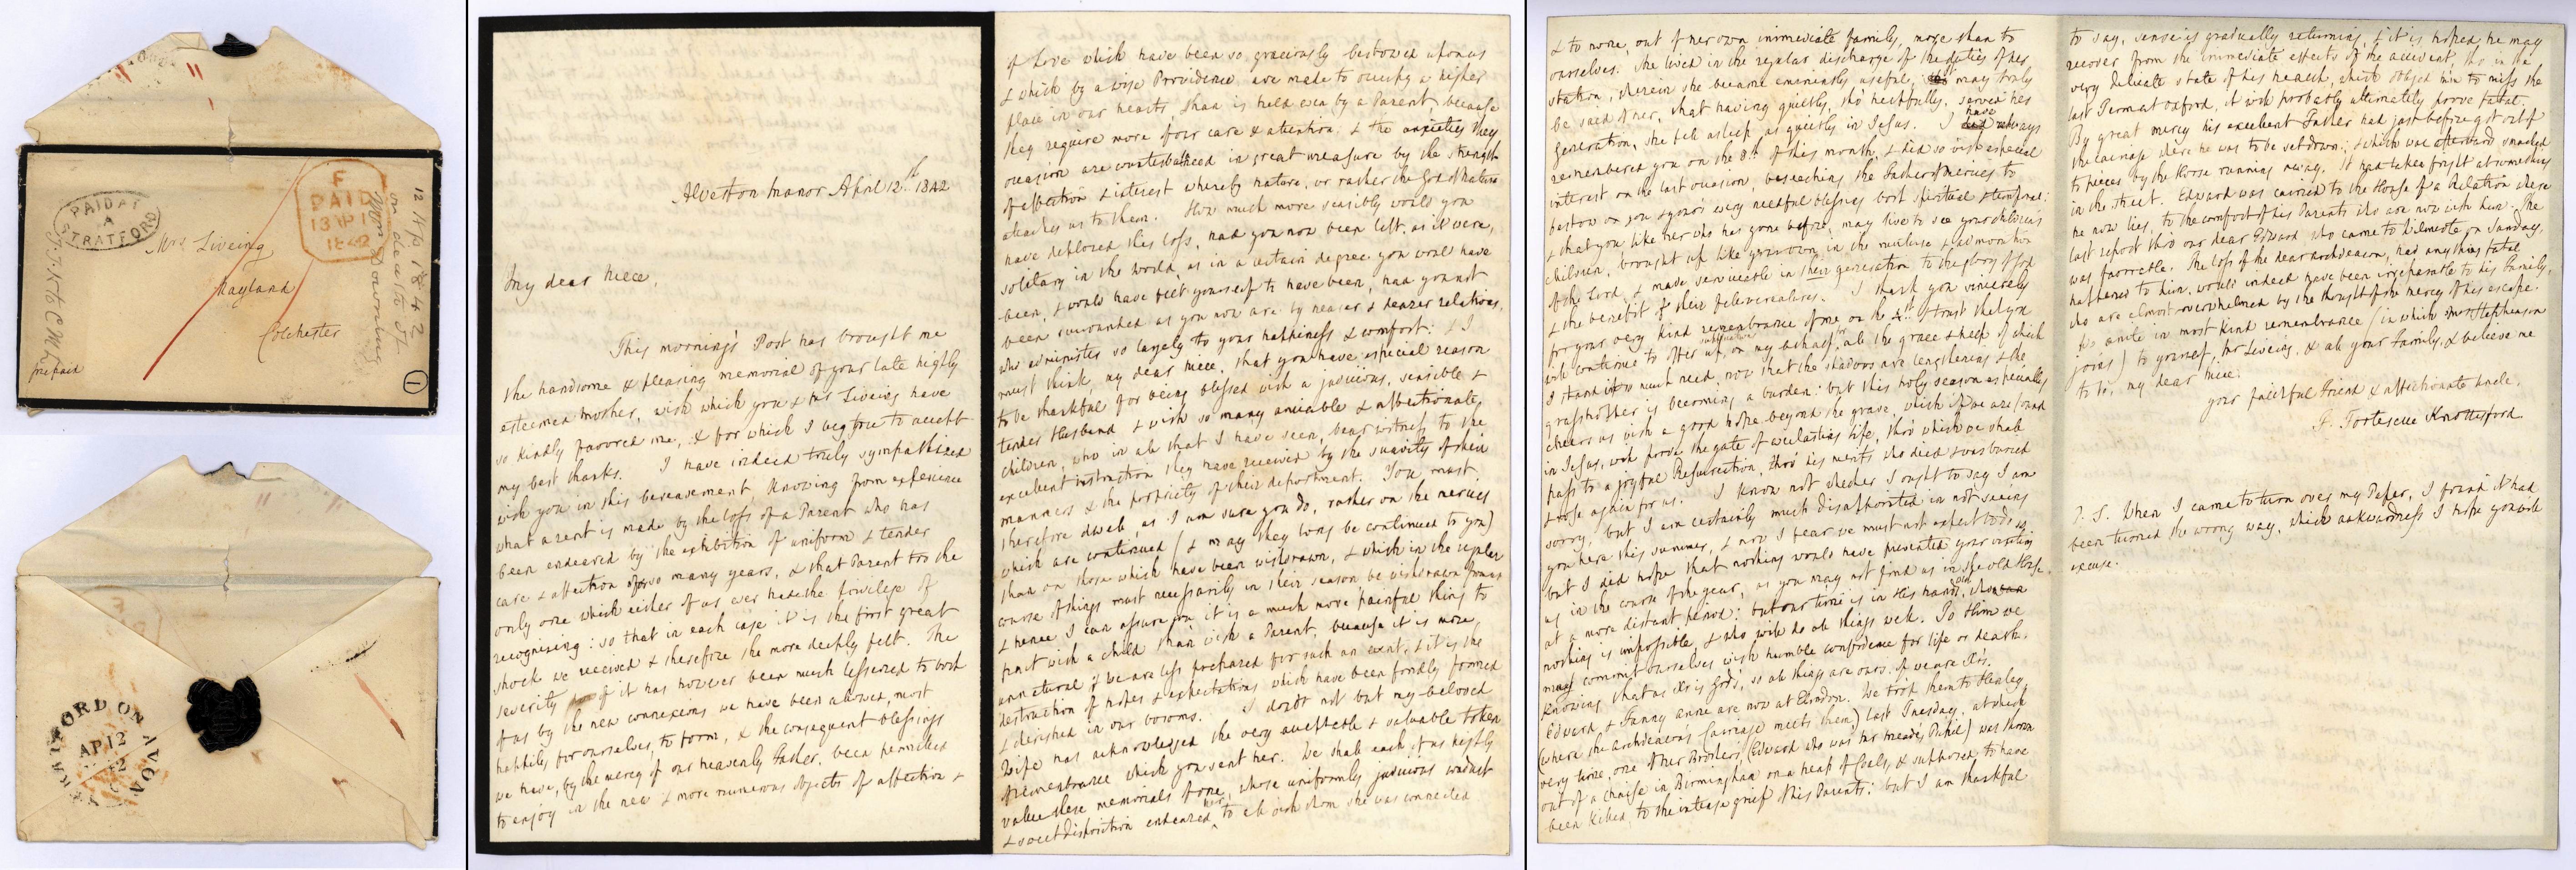 PAID AT
A
STRATFORD
F
PAID
13 AP 13
1842
Mrs Liveing
Nayland
Colchester
prepaid
12 Ap 1842
on death of
Mrs Downing
J.F.K to C M
1
STRATFORD ON AVON
AP 12
42
Alveston Manor April 12th 1842
My dear Niece,
This morning's Post has brought me
the handsome & pleasing memorial of your late highly
esteemed Mother, with which you & Mr Liveing have
so kindly favored me, & for which I beg you to accept
my best thanks. I have indeed truly sympathized
with you in this bereavement, knowing from experience
what a rent is made by the loss of a Parent who has
been endeared by the exhibition of uniform & tender
care & affection for so many years, & that Parent too the
only one which either of us ever had the privilege of
recognising: so that in each case it is the first great
shock we received & therefore the more deeply felt. The
severity of it has however been much lessened to both
of us by the new connexions we have been allowed, most
happily for ourselves, to form, & the consequent blessings
we have, by the mercy of our heavenly Father, been permitted
to enjoy in the new & more numerous objects of affection &
of Love which have been so graciously bestowed upon us
& which by a wise Providence are made to occupy a higher
place in our hearts, than is held even by a Parent, because
they require more of our care & attention, & the anxieties they
occasion are counterbalanced in great measure by the strength
of affection & interest whereby nature, or rather the God of nature
attaches us to them. How much more sensibly would you
have deplored this loss, had you now been left, as it were,
solitary in the world, as in a certain degree you would have
been, & would have felt yourself to have been, had you not
been surrounded as you now are by nearer & dearer relations,
who administer so largely to your happiness & comfort: & I
must think, my dear niece, that you have especial reason
to be thankful for being blessed with a judicious, sensible &
tender Husband & with so many amiable & affectionate
children, who in all that I have seen, bear witness to the
excellent instruction they have received by the suavity of their
manners & the propriety of their deportment. You must
therefore dwell, as I am sure you do, rather on the mercies
which are continued (& may they long be continued to you)
than on those which have been withdrawn, & which in the regular
course of things must necessarily in their season be withdrawn from us
& hence I can assure you it is a much more painful thing to
part with a child than with a Parent, because it is more
unnatural & we are less prepared for such an event, & it is the
destruction of hopes & expectations which have been fondly formed
& cherished in our bosoms. I doubt not but my beloved
Wife has acknowledged the very acceptable & valuable token
of remembrance which you sent her. We shall each of us highly
value these memorials of one, whose uniformly judicious conduct
& sweet disposition endeared her to all with whom she was connected
& to none, out of her own immediate family, more than to
ourselves. She lived in the regular discharge of the duties of her
station, wherein she became eminently useful, may truly
be said of her, that having quietly, tho' usefully, served her
generation, she fell asleep as quietly in Jesus. I have always
remembered you on the 8th of this month, & did so with especial
interest on the last occasion, beseeching the Father of mercies to
bestow on you & yours every needful blessing both spiritual & temporal:
& that you like her who has gone before, may live to see your children's
children, brought up like your own in the nurture & admonition
of the Lord, & made serviceable in their generation to the glory of God
& the benefit of their fellow creatures. I thank you sincerely
for your very kind remembrance of me on the I trust that you
will continue to offer up, on my behalf, all the grace & help of which
I stand in so much need, now that the shadows are lengthening & the
grasshopper is becoming a burden: but this holy season especially
cheers us with a good hope beyond the grave, which if we are found
in Jesus, will prove the gate of everlasting life, thro' which we shall
pass to a joyful Resurrection, thro' his merits who died & was buried
& rose again for us. I know not whether I ought to say I am
sorry, but I am certainly much disappointed in not seeing
you here this summer, & now I fear we must not expect to do so.
but I did hope that nothing would have prevented your visiting
us in the course of the year, as you may not find us in the old House
at a more distant period: but our time is in His hand, with whom
nothing is impossible, & who will do all things well. To Him we
may commit ourselves with humble confidence for life or death,
knowing that as Xt is God's, so all things are ours, if we are Xt's.
Edward & Fanny Anne are now at Elmdon. We took them to Henley,
(where the Archdeacon's Carriage meets them) last Tuesday, at which
very time, one of her Brothers, (Edward who was Mr Meade's Pupil) was thrown
out of a Chaise in Birmingham on a heap of Coals, & supposed to have
been killed, to the intense grief of his Parents: but I am thankful
to say, sense is gradually returning, & it is hoped he may
recover from the immediate effects of the accident, tho' in the
very delicate state of his health, which obliged him to miss the
last Term at Oxford, it will probably ultimately prove fatal.
By great mercy his excellent Father had just before got out of
the carriage where he was to be set down, & which was afterward smashed
to pieces by the Horse running away. It had taken fright at something
in the street. Edward was carried to the House of a Relation where
he now lies, to the comfort of his Parents who are now with him. The
last report thro' our dear Edward who came to Wilmcote on Sunday,
was favorable. The loss of the dear archdeacon, had any thing fatal
happened to him, would indeed have been irreparable to his Family,
who are almost overwhelmed by the thought of the mercy of his escape.
We unite in most kind remembrance (in which
joins) to yourself, Mr Liveing, & all your Family, & believe me
to be, my dear Niece,
your faithful Friend & affectionate Uncle,
J. Fortescue Knottesford
P. S. When I came to turn over my Paper, I found it had
been turned the wrong way, which awkwardness I hope you will
excuse.